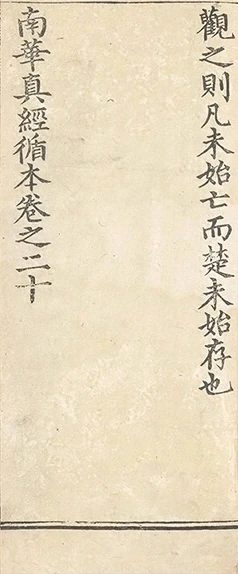 觀之則凡未始亡而楚未始存也
南華真經循本卷之二十